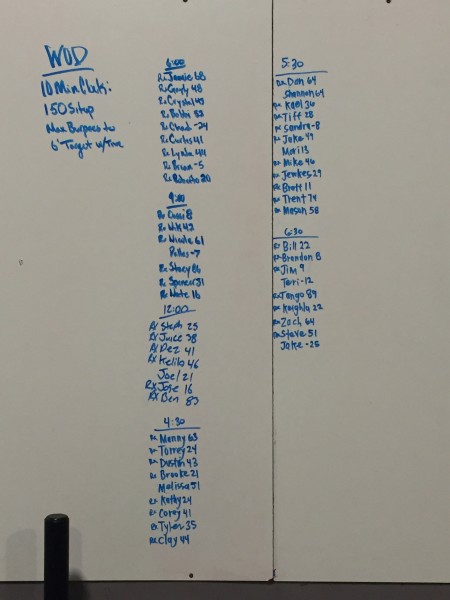 WOD
10 Min Clock:
150 Situp
Max Burpees to
6" Target w/ Time
6:00
Rx Jamie 68
Rx 48
Rx Crystal
Rx Bobbi
Rx Chad -24
Rx Curtis 41
Rx Lynda 44
Rx Brian -5
Rx Roberto 20
9:00
Rx 8
Rx 42
Rx Nicole 61
Dallas -7
Rx Stacy 86
Rx Spencer 31
Rx Nate 16
12:00
Rx Steph 25
Rx Juice 38
Rx Dez 41
Rx 46
Joel 21
Rx Jose 16
Rx Ben 83
4:30
Rx Manny 63
Rx Torrey 24
Rx Dustin 43
Rx Brooke 21
Melissa 51
Rx Kathy 24
Rx Corey 41
Rx Tyler 35
Rx Clay 44
5:30
Rx Dan 64
Shannon 64
Rx Kael 36
Rx Tiff 28
Rx Sandra -8
Rx Jake 49
Mari 13
Rx Mike 46
Rx Jenkes 29
Rx Brett 11
Rx Trent 74
Rx Mason 58
6:30
Rx Bill 22
Rx Brandon 8
Rx Jim 9
Terri -12
Rx Tango 89
Rx 22
Rx Zach 64
Rx Steve 51
Jake -25